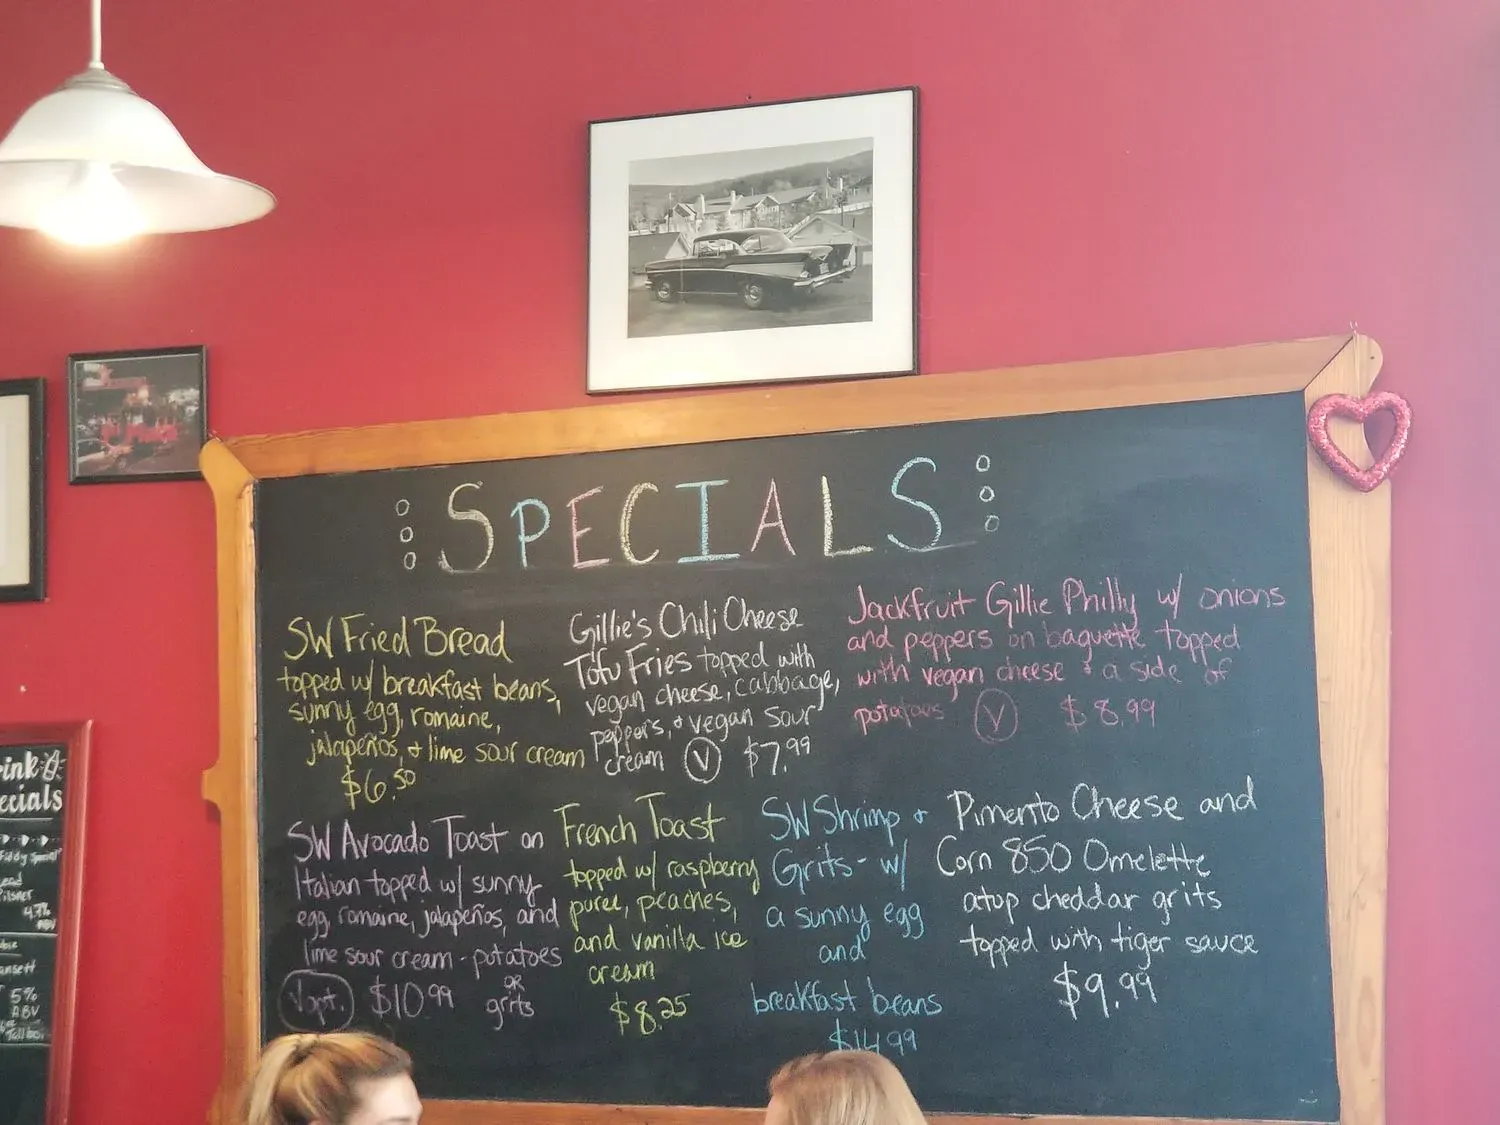 SPECIALS
SW Fried Bread
topped w/ breakfast beans,
sunny egg, romaine,
jalapeños, + lime sour cream
$6.50
Gillie's Chili Cheese
Tofu Fries topped with
vegan cheese, cabbage,
peppers, + vegan sour
cream Ⓥ $7.99
Jackfruit Gillie Philly w/ onions
and peppers on baguette topped
with vegan cheese + a side of
potatoes Ⓥ $8.99
SW Avocado Toast on
Italian topped w/ sunny
egg, romaine, jalapeños, and
lime sour cream - potatoes
OR
V opt. $10.99 grits
French Toast
topped w/ raspberry
puree, peaches,
and vanilla ice
cream
$8.25
SW Shrimp +
Grits - w/
a sunny egg
and
breakfast beans
$14.99
Pimento Cheese and
Corn 850 Omelette
atop cheddar grits
topped with tiger sauce
$9.99
ink
ecials
4.7%
ABV
ansett
5%
ABV